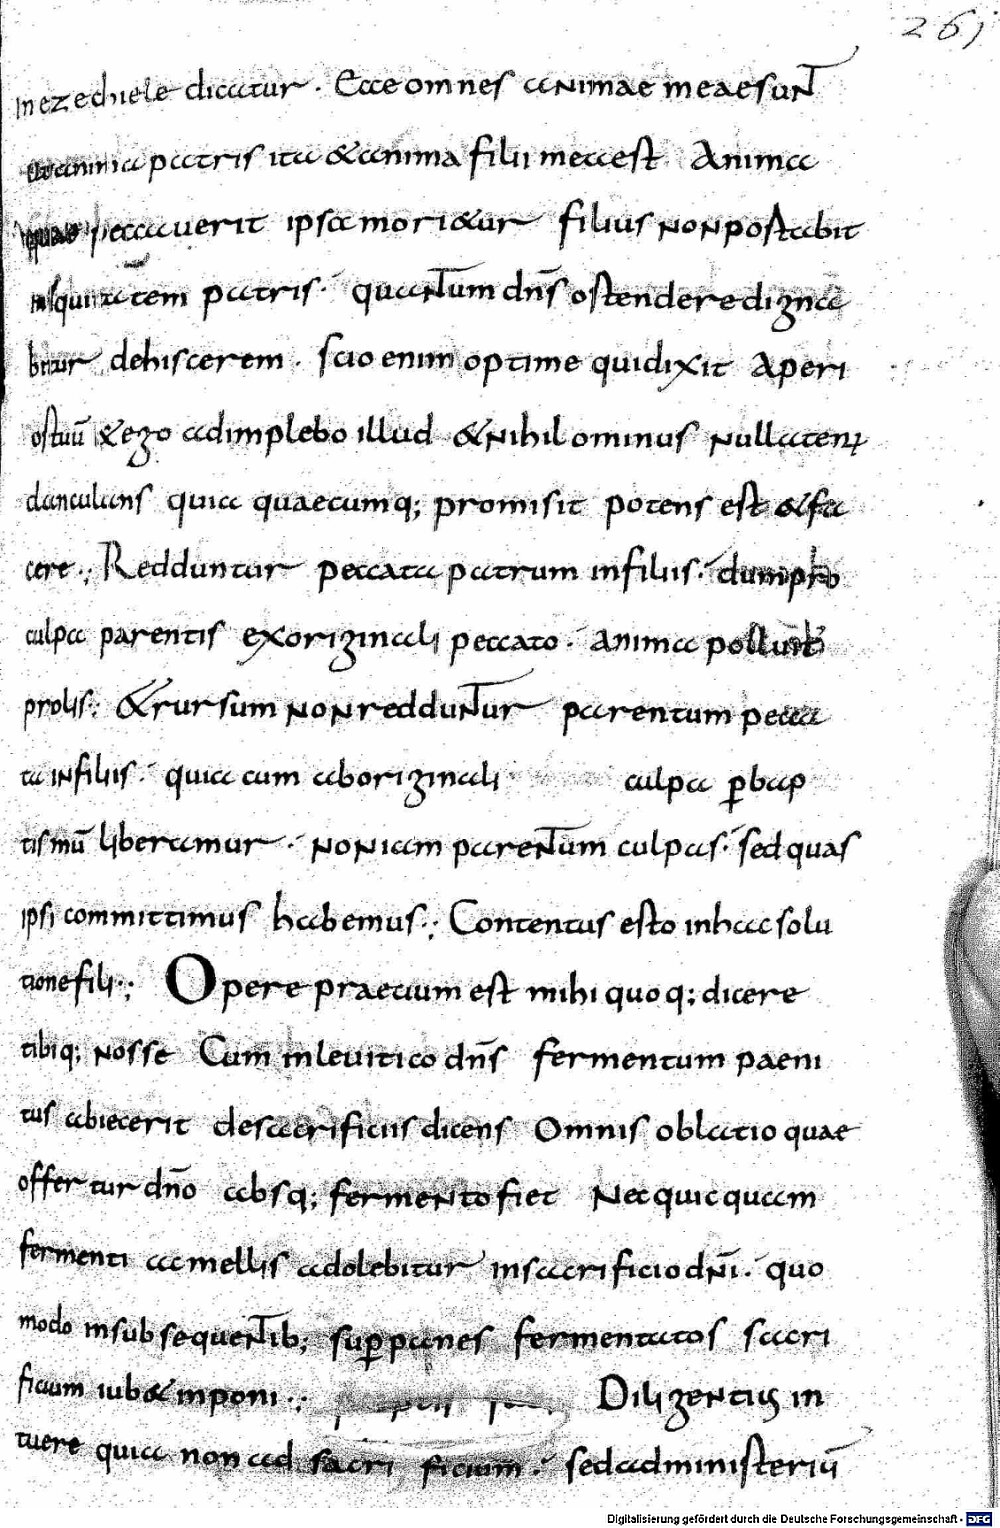 261
in ezechiele dicatur. Ecce omnes animae meae sunt
anima patris ita & anima filii mea est Anima
quae peccauerit ipsa mori&ur filius non portabit
iniquitatem patris. quantum dn̄s ostendere digna
bitur dehiscerem. scio enim optime qui dixit Aperi
os tuū & ego adimplebo illud & nihilominus nullaten;
danculans quia quaecumq; promisit potens est & fa
cere.; Redduntur peccata patrum in filiis. dum pro
culpa parentis ex originali peccato. anima polluit᷒
prolis; & rursum non redduntur parentum pecca
ta in filiis. quia cum ab originali culpa ꝑ bap
tismū liberamur. non iam parentum culpas. sed quas
ipsi committimus habemus.; Contentus esto in hac solu
tione fili.; Opere praecium est mihi quoq; dicere
tibiq; nosse Cum in leuitico dn̄s fermentum paeni
tus abiecerit de sacrificiis dicens Omnis oblatio quae
offertur dn̄o absq; fermento fiet Nec quicquam
fermenti ac mellis adolebitur in sacrificio dn̄i. quo
modo in subsequentib; suꝑ panes fermentatos sacri
ficium iub& inponi.; Diligentius in
tuere quia non ad sacrificium. sed ad ministeriū
Digitalisierung gefördert durch die Deutsche Forschungsgemeinschaft - DFG